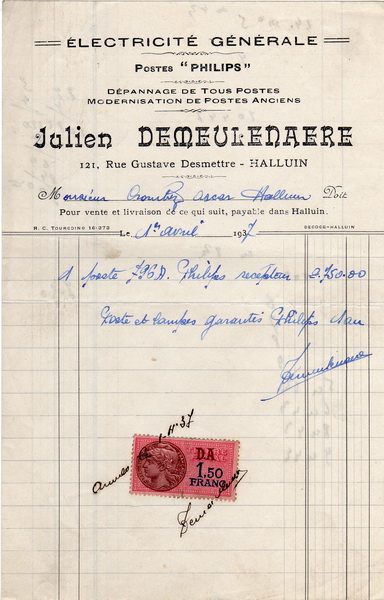 ÉLECTRICITÉ GÉNÉRALE
POSTES "PHILIPS"
DÉPANNAGE DE TOUS POSTES
MODERNISATION DE POSTES ANCIENS
Julien DEMEULENAERE
121, Rue Gustave Desmettre - HALLUIN
Monsieur Oscar Halluin Doit
Pour vente et livraison de ce qui suit, payable dans Halluin.
R. C. TOURCOING 16-373
DECOCK-HALLUIN
Le 1er avril 1937
1 poste 796A. Philips recepteur 2.750.00
Poste et lampes garantis Philips 1 an
Demeulenaere
37
DA
1,50
FRANC